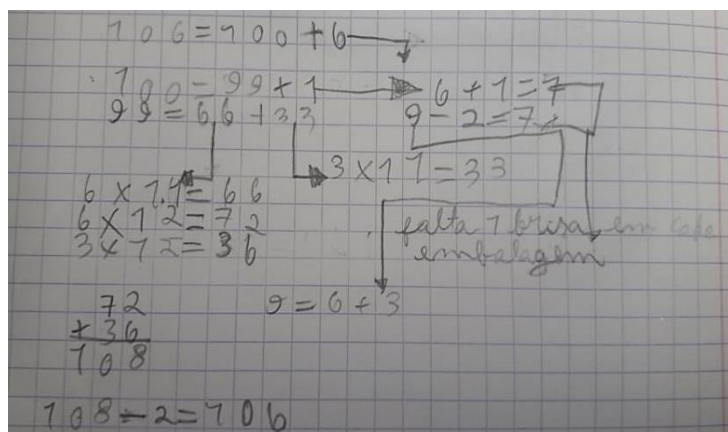 106=100+6
100=99+1
6+1=7
99=66+33
9-2=7
3x11=33
6x11=66
6x12=72
3x12=36
falta 1 brisa em cada
embalagem
72
+36
108
9=6+3
108-2=106